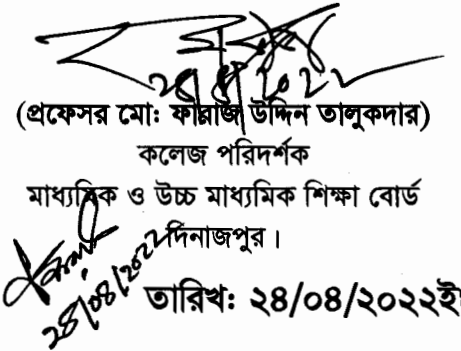 ২৪/৪/২০২২
(প্রফেসর মো: ফারাজ উদ্দিন তালুকদার)
কলেজ পরিদর্শক
মাধ্যমিক ও উচ্চ মাধ্যমিক শিক্ষা বোর্ড
দিনাজপুর।
২৪/০৪/২০২২
তারিখ: ২৪/০৪/২০২২ই